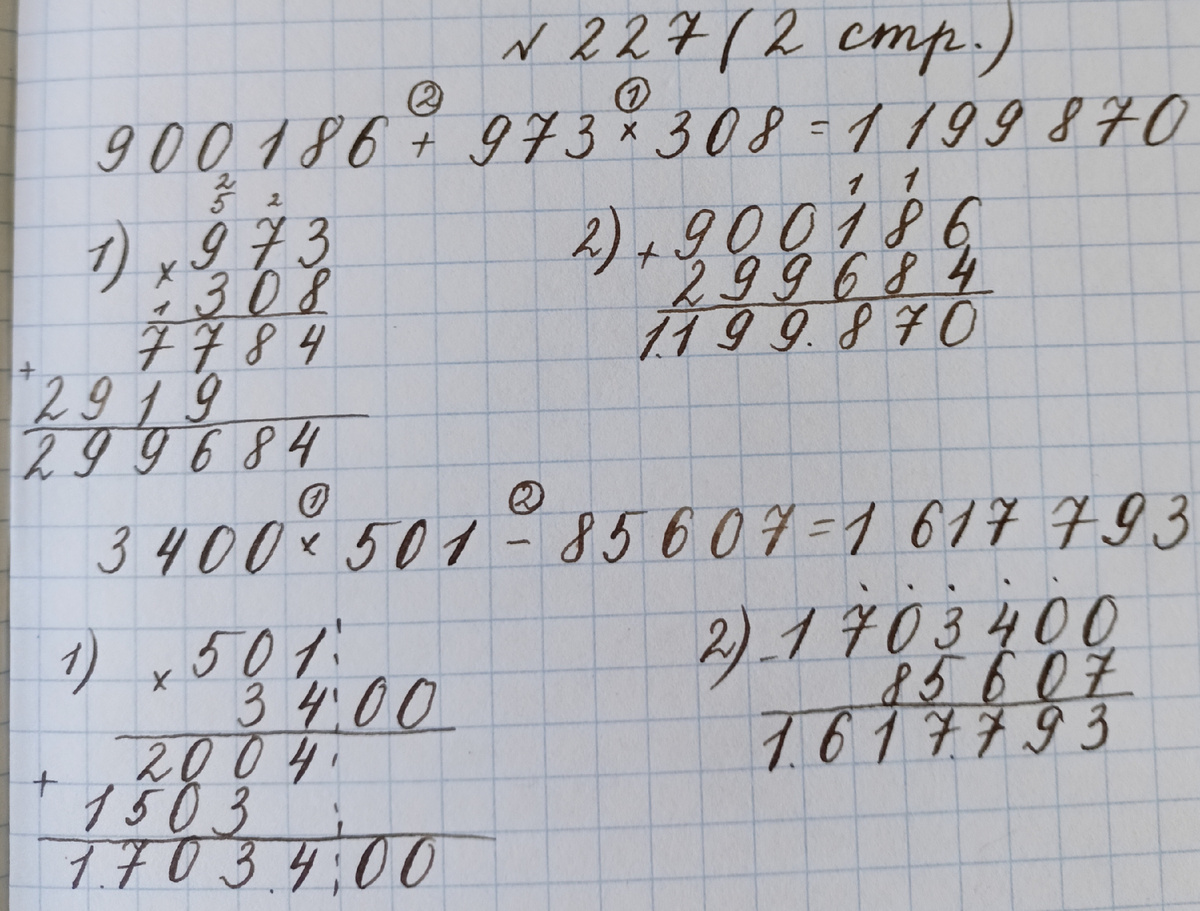 № 227 (2 стр.)
② ①
900186 + 973 × 308 = 1199870
2
5 2
1) × 973
308
1
7784
+
2919
299684
1 1
2) + 900186
299684
1.199.870
① ②
3400 × 501 - 85607 = 1617793
1) × 501
3400
2004
+
1503
1.703.400
. . . . .
2) - 1703400
85607
1.617.793